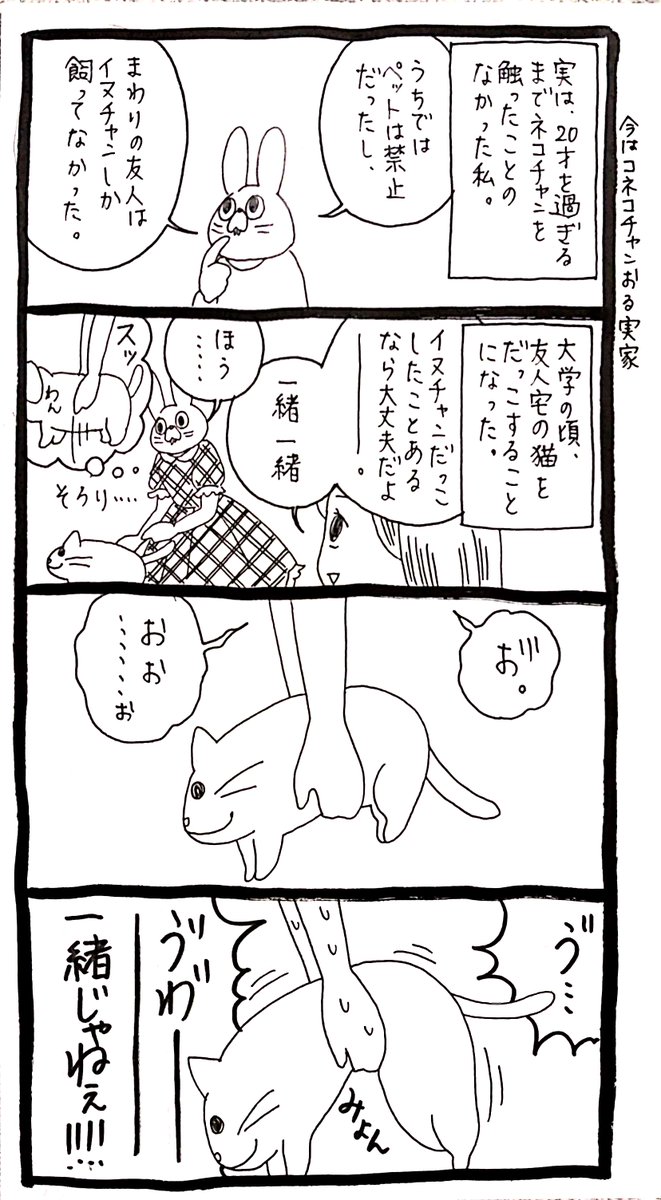 今はコネコチャンおる実家
実は、20才を過ぎる
までネコチャンを
触ったことの
なかった私。
うちでは
ペットは禁止
だったし、
まわりの友人は
イヌチャンしか
飼ってなかった。
大学の頃、
友人宅の猫を
だっこすること
になった。
イヌチャンだっこ
したことある
なら大丈夫だよ
ー。
一緒一緒
ほう
‥‥
スッ
わん
そろり‥‥
お。
おお
‥‥‥お
ヴ…
みょん
ヴわ゛ー
一緒じゃねぇ!!!!…